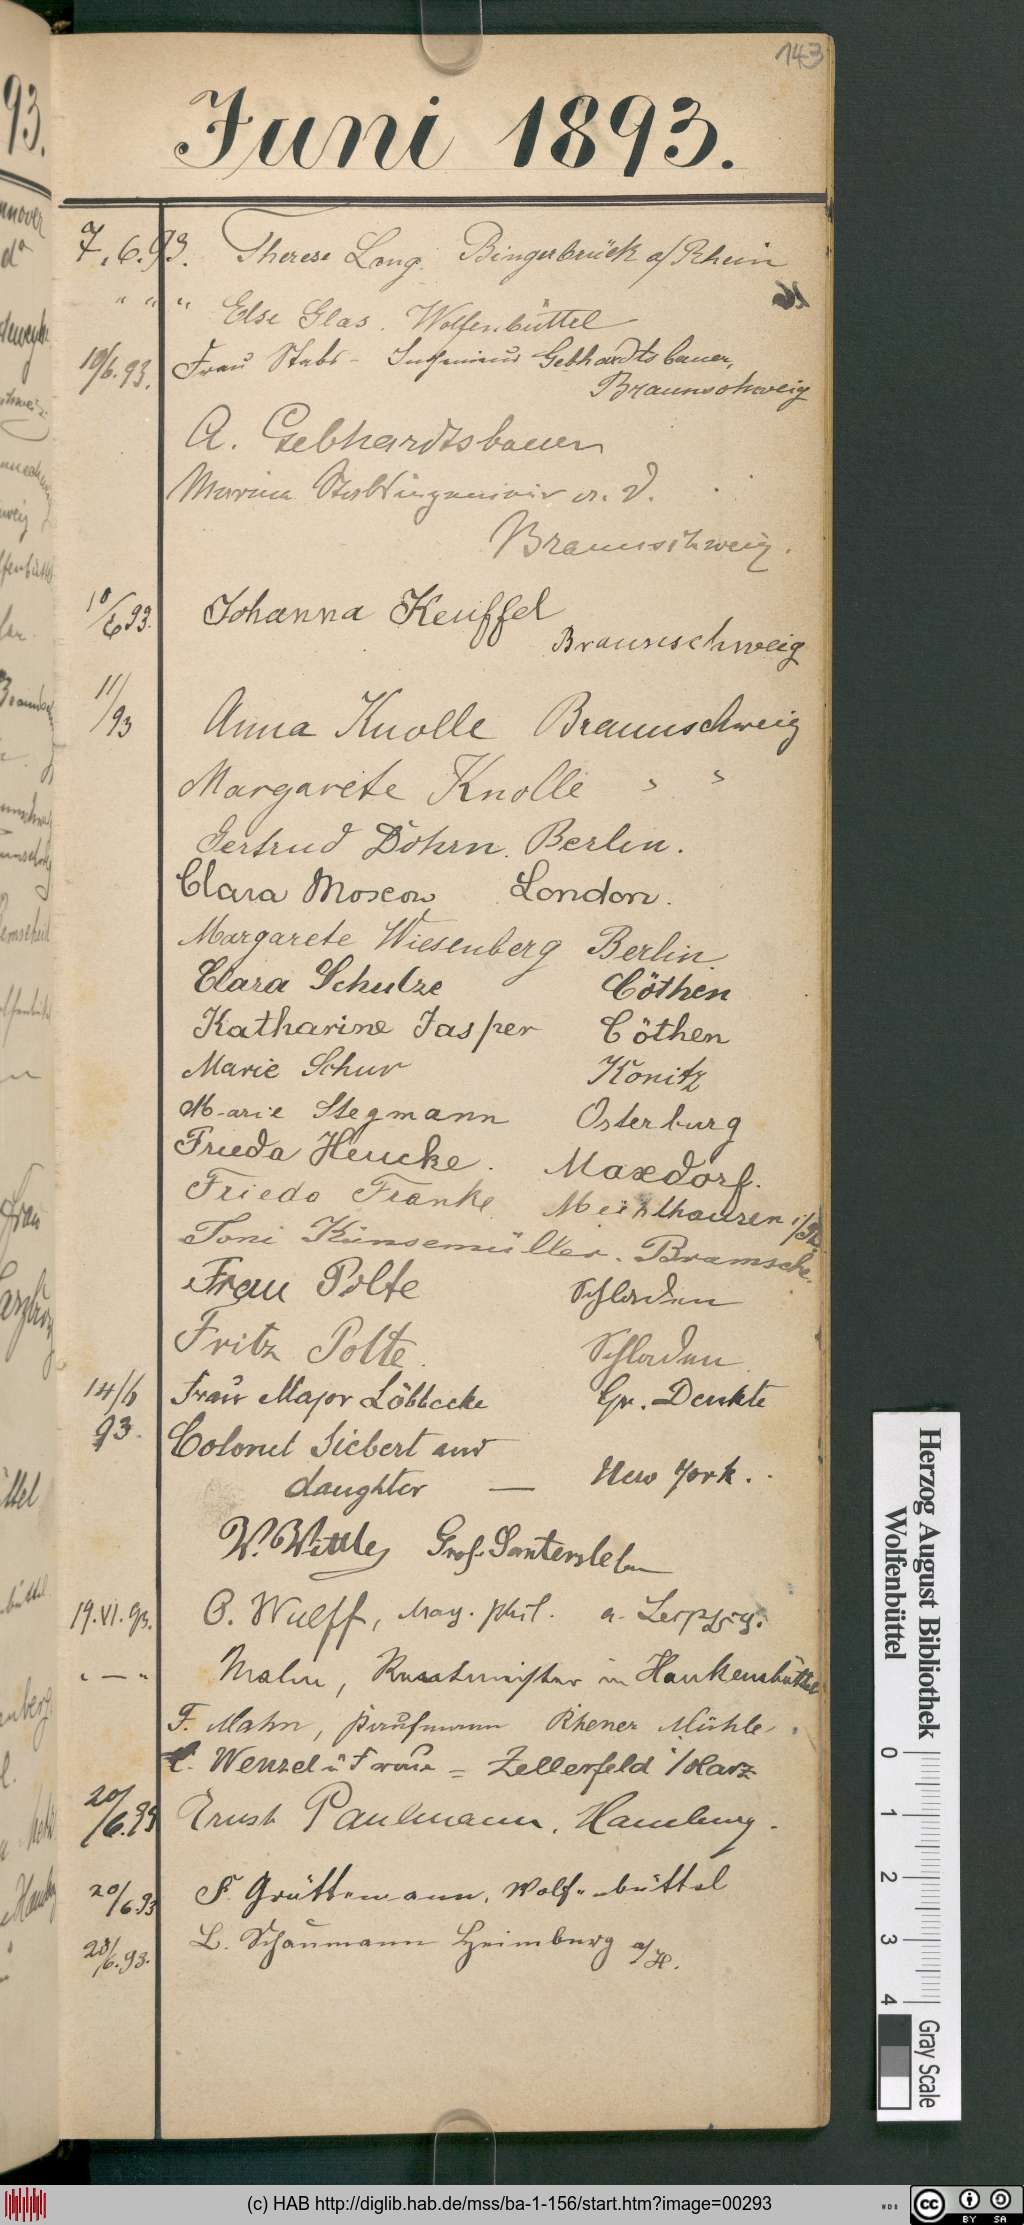 143
Juni 1893.
7.6.93. Therese Lang. Bingerbrück a/Rhein
" " " Else Glas. Wolfenbüttel
10/6.93. Frau Stabs-Ingenieur Gebhardtsbauer,
Braunschweig
A. Gebhardtsbauer
Marine Stabsingenieur a. D.
Braunschweig.
10/6 93. Johanna Keuffel
Braunschweig
11/93 Anna Knolle Braunschweig
Margarete Knolle " "
Gertrud Dohrn. Berlin.
Clara Moscow, London.
Margarete Wiesenberg Berlin.
Clara Schulze Cöthen
Katharine Jasper Cöthen
Marie Schur Konitz
Marie Stegmann Osterburg
Frieda Heucke. Maxdorf.
Frieda Franke Mühlhausen i/Th.
Toni Künsemüller. Bramsche.
Frau Polte Schladen
Fritz Polte. Schladen.
14/6 93. Frau Major Löbbecke Gr. Denkte
Colonel Siebert and
daughter — New York.
W. Wittle Groß-Santersleben
19.VI.93. O. Wulff, Mag. phil. a. Leipzig.
" — " Mahn, in Hankensbüttel
F. Mahn, Rhener Mühle.
Wenzel u Frau = Zellerfeld i/Harz
20/6.93 Ernst Paulmann, Hamburg.
20/6.93 F. Grüttemann, Wolfenbüttel
23/6.93. L. Schaumann Heimburg a/H.
Herzog August Bibliothek
Wolfenbüttel
0 1 2 3 4
Gray Scale
(c) HAB http://diglib.hab.de/mss/ba-1-156/start.htm?image=00293
WDB
cc BY SA